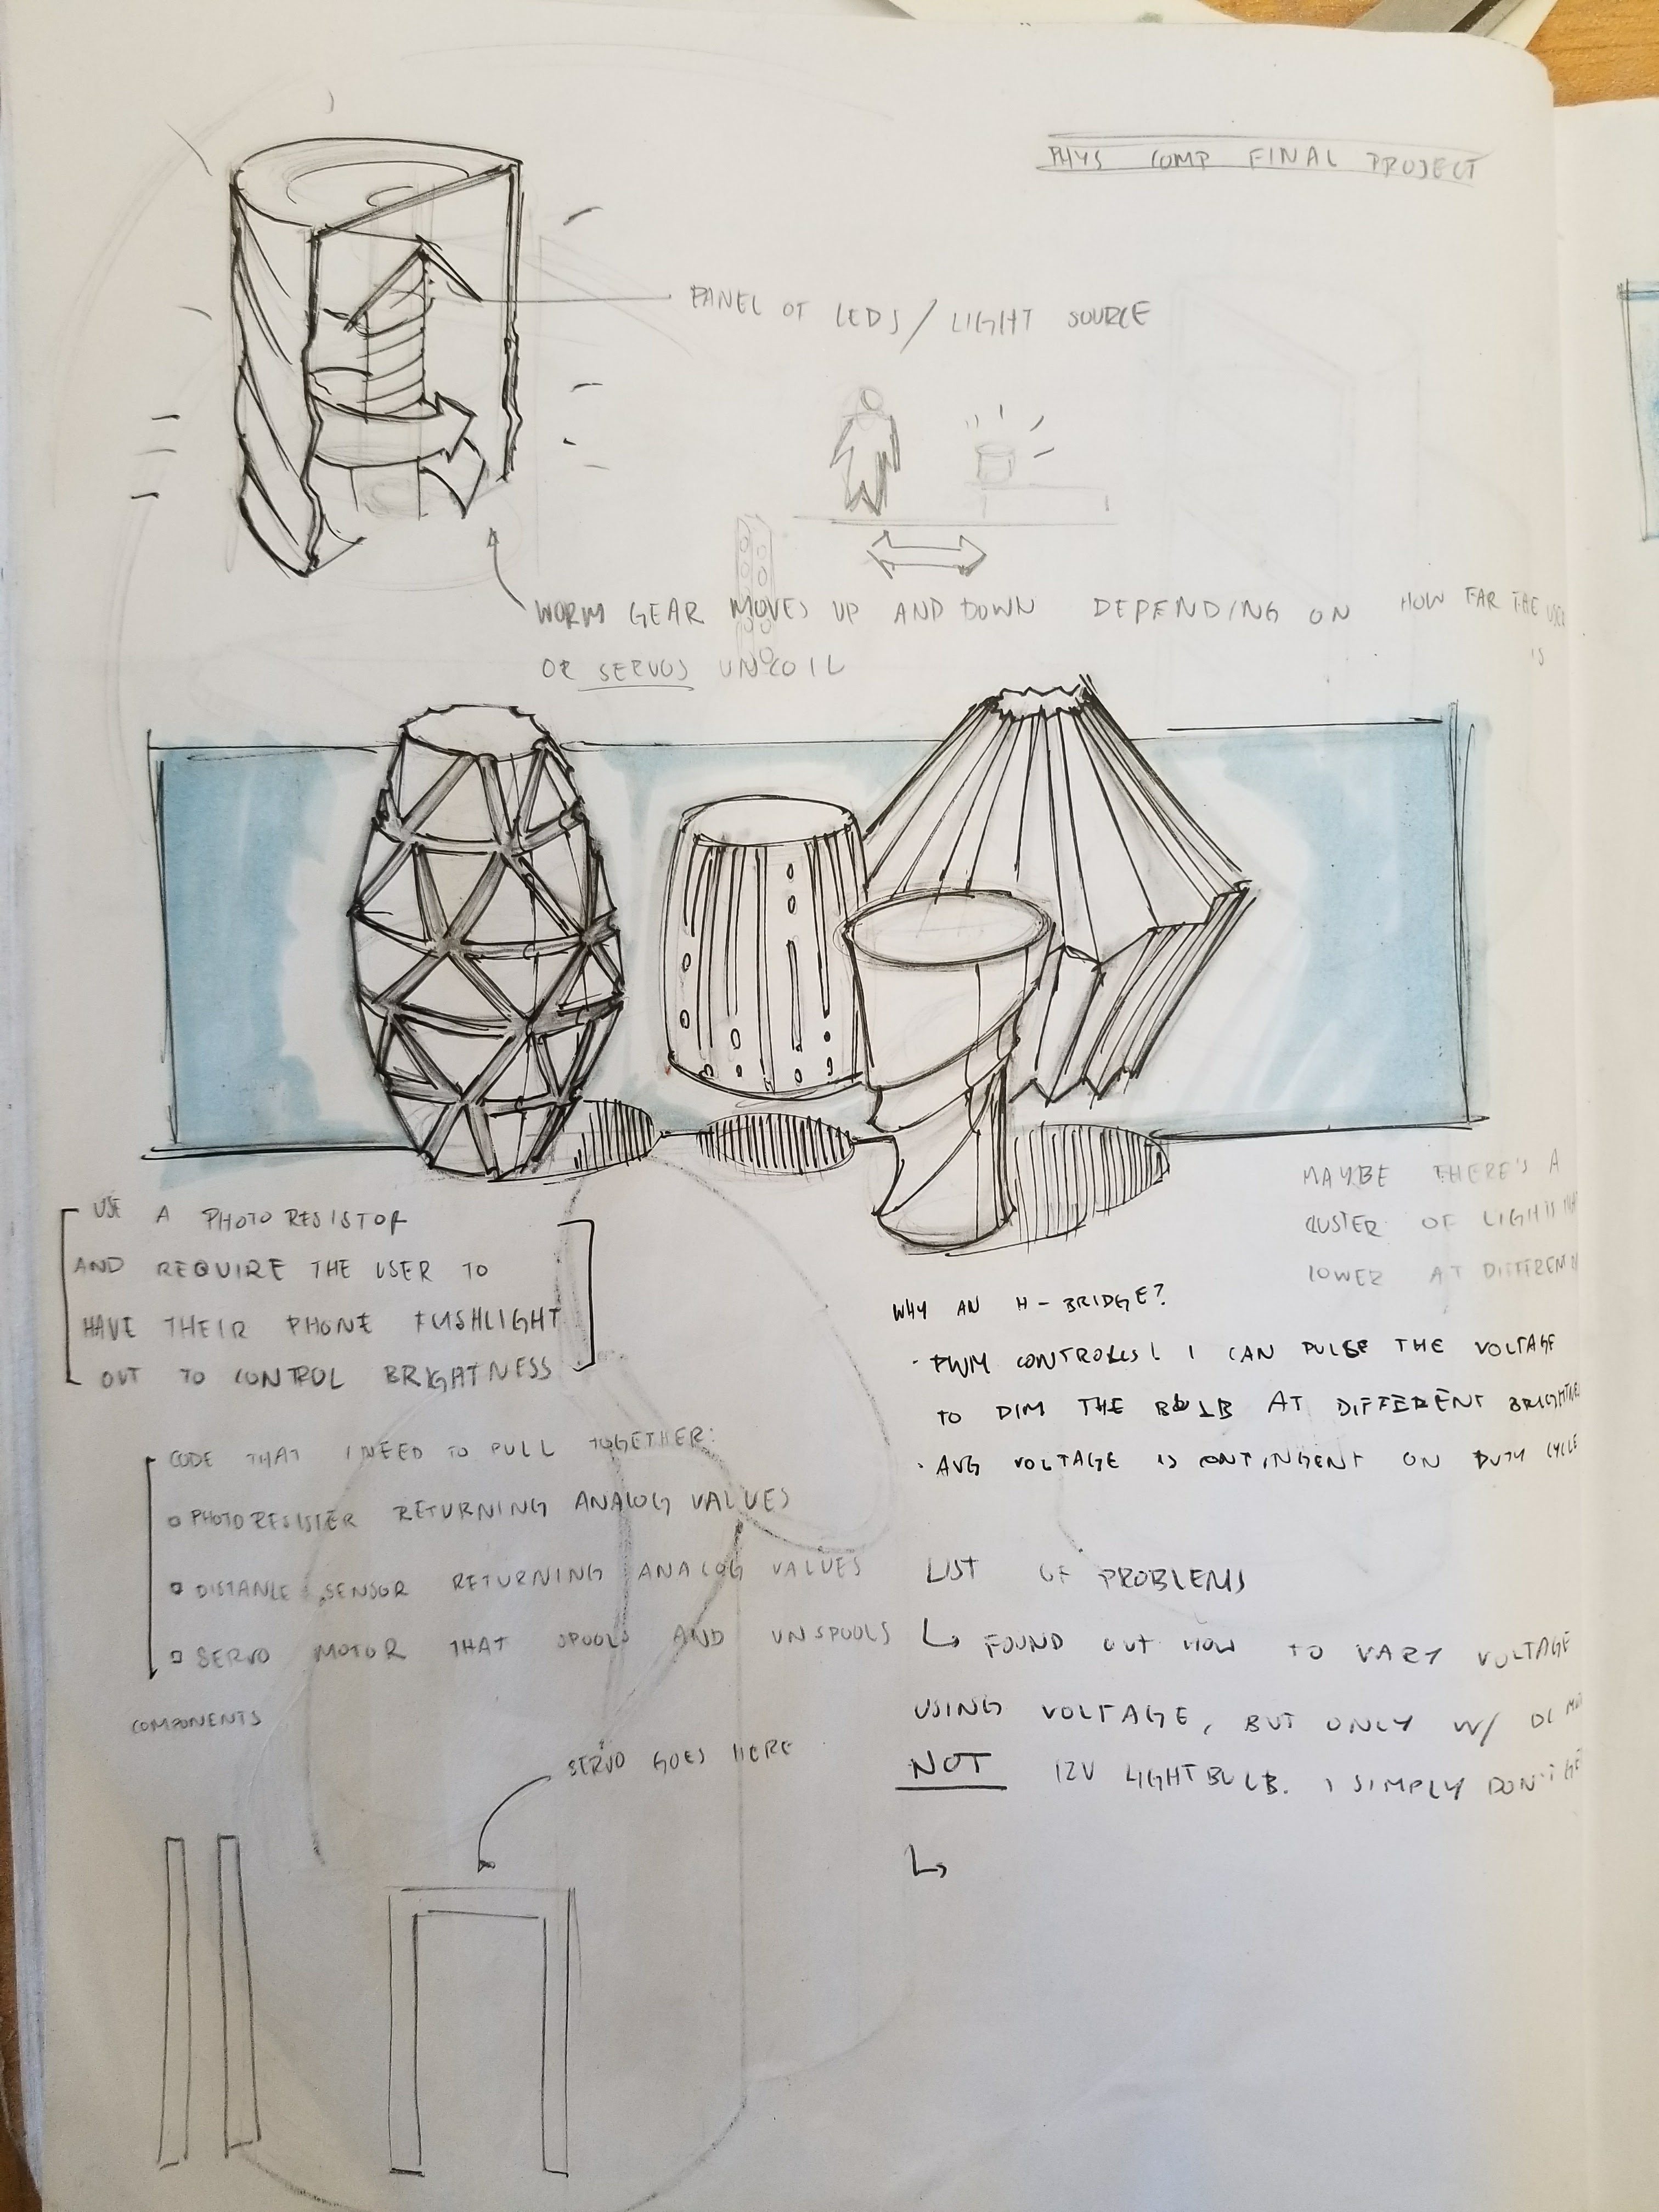 PHYS COMP FINAL PROJECT
PANEL OF LEDS / LIGHT SOURCE
WORM GEAR MOVES UP AND DOWN DEPENDING ON HOW FAR THE USER
IS
OR SERVOS UNCOIL
USE A PHOTO RESISTOR
AND REQUIRE THE USER TO
HAVE THEIR PHONE FLASHLIGHT
OUT TO CONTROL BRIGHTNESS
MAYBE THERE'S A
CLUSTER OF LIGHTS
LOWER AT DIFFEREN
WHY AN H-BRIDGE?
· PWM CONTROLS! I CAN PULSE THE VOLTAGE
TO DIM THE BULB AT DIFFERENT BRIGHTNES
· AVG VOLTAGE IS CONTINGENT ON DUTY CYCLE
CODE THAT I NEED TO PULL TOGETHER:
PHOTORESISTER RETURNING ANALOG VALUES
DISTANCE SENSOR RETURNING ANALOG VALUES
SERVO MOTOR THAT SPOOLS AND UNSPOOLS
COMPONENTS
SERVO GOES HERE
LIST OF PROBLEMS
↳ FOUND OUT HOW TO VARY VOLTAGE
USING VOLTAGE, BUT ONLY W/ DC
NOT 12V LIGHTBULB. I SIMPLY DON'T GE
↳